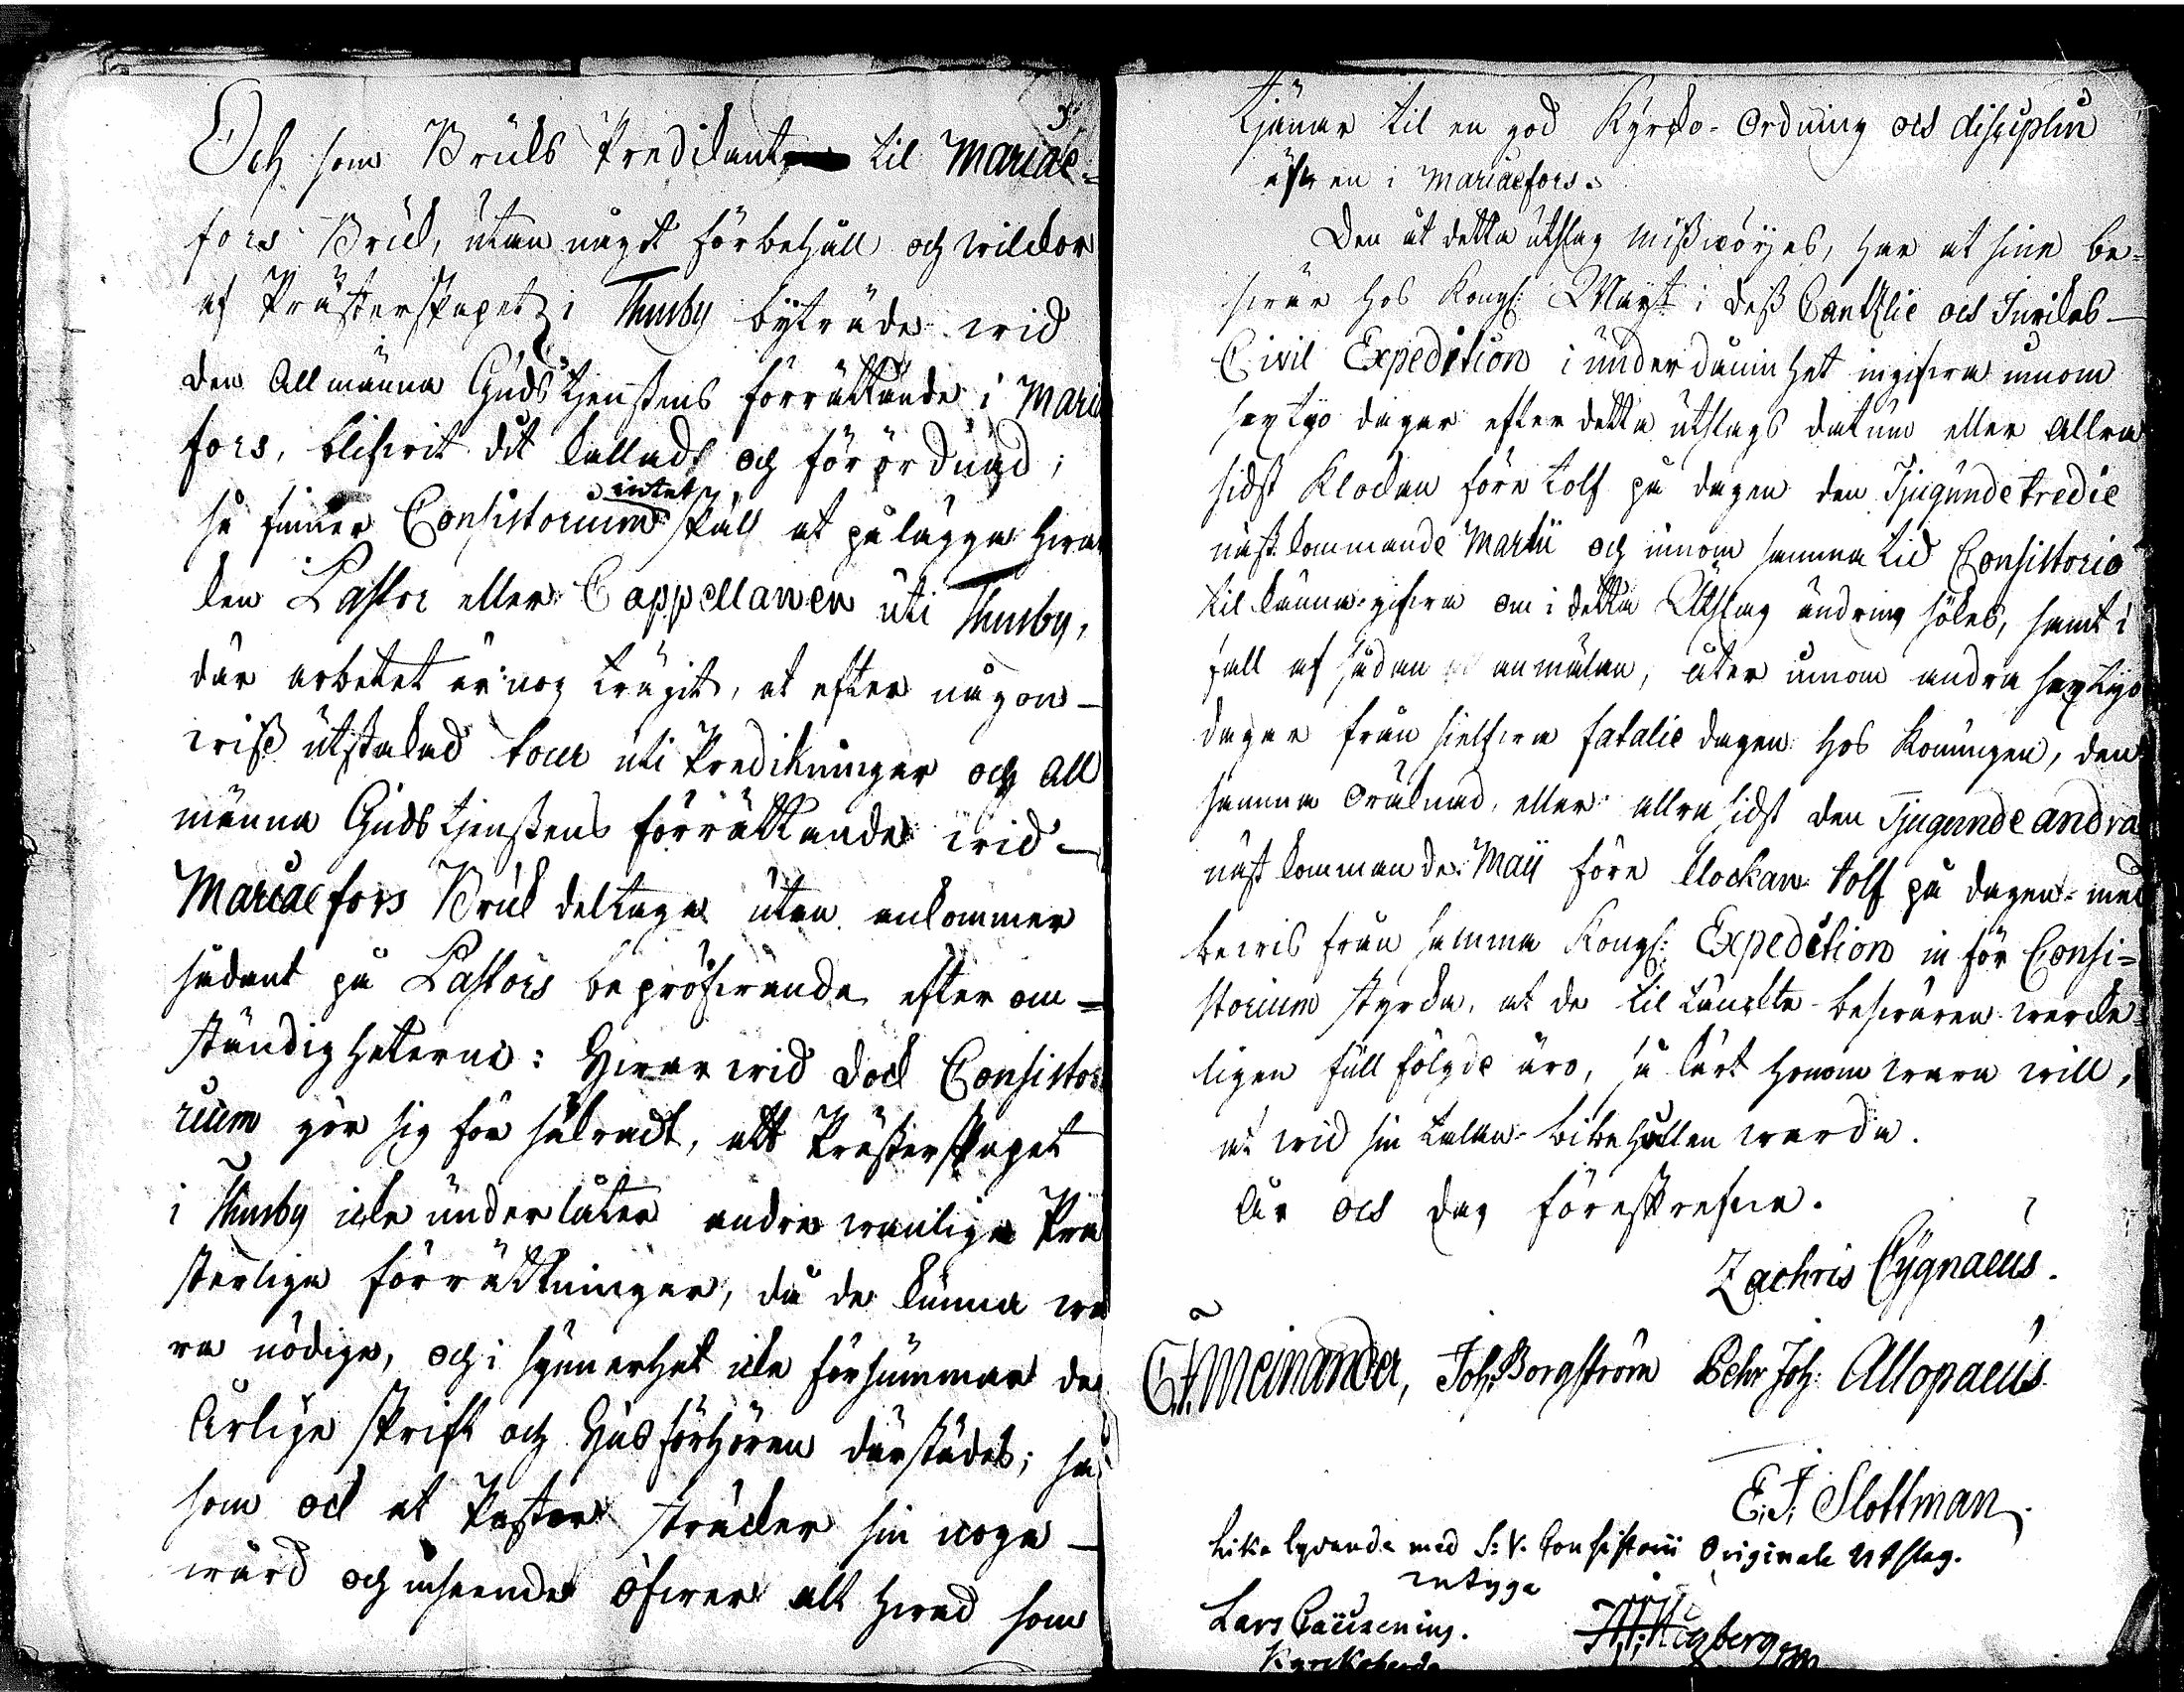 Och som Bruks Predikant til Mariae=
fors Bruk, utan något förbehåll och wilckor
af Prästerskapet i Thusby byträde wid
den Allmänna Gudstjenstens förrättande i Mariae
fors, blifwit dit kallad och förordnad;
så finner Consistorium intet skäl at pålägga hwar
ken Pastor eller Cappellanen uti Thusby,
där arbetet är nog trägit, at efter någon-
wiss utstakad tour uti Predikningar och All
männa Gudstjenstens förrättande wid
Mariaefors Bruk deltaga utan ankommer
sådant på Pastors bepröfwande efter om=
ständigheterne: Hwarwid dock Consisto
rium gör sig försäkradt, att Prästerskapet
i Thusby icke underlåter andra wanliga Prä
sterliga förrättningar, då de kunna wa
ra nödige, och i synnerhet icke försummar de
Årlige Skrift och Husförhören därstädes; så
som ock at Pastor sträcker sin noga
wård och inseende öfwer alt hwad som
tjänar til en god Kyrko-Ordning och disciplin
äfven i Mariaefors.
Den åt detta utslag missnöyes, har at sine be=
swär hos Kongl: Mayt: i dess Cantzlie och Inrikes
Civil Expedition i underdånighet ingifwa innom
sextyo dagar efter detta utslags datum eller allra
sidst Klockan före tolf på dagen den Tjugundetredie
nästkommande Martii och innom samma tid Consistorio
tilkänna gifwa om i detta Utslag ändring sökes, samt i
fall af sådan anmälan, åter innom andra sextijo
dagar från sielfwa fatalie dagen hos Konungen, den
samma oräknad, eller allra sidst den Tjugundeandra
nästkommande Maij före klockan tolf på dagen med
bewis från samma Kongl: Expedition inför Consi=
storium styrka, at de til länckte beswären wercke=
ligen fullfölgde äro, så kärt honom wara will,
at wid sin talan bibehållen warda.
År och dag föreskrefne.
Zachris Cygnaeus.
C.F. Meinander, Joh: Borgström Pehr Joh: Allopaeus
E: J: Slottman
Lika lydande med S: V. Consistorii Originale Utslag.
intyga
Lars
Kyrckoherde